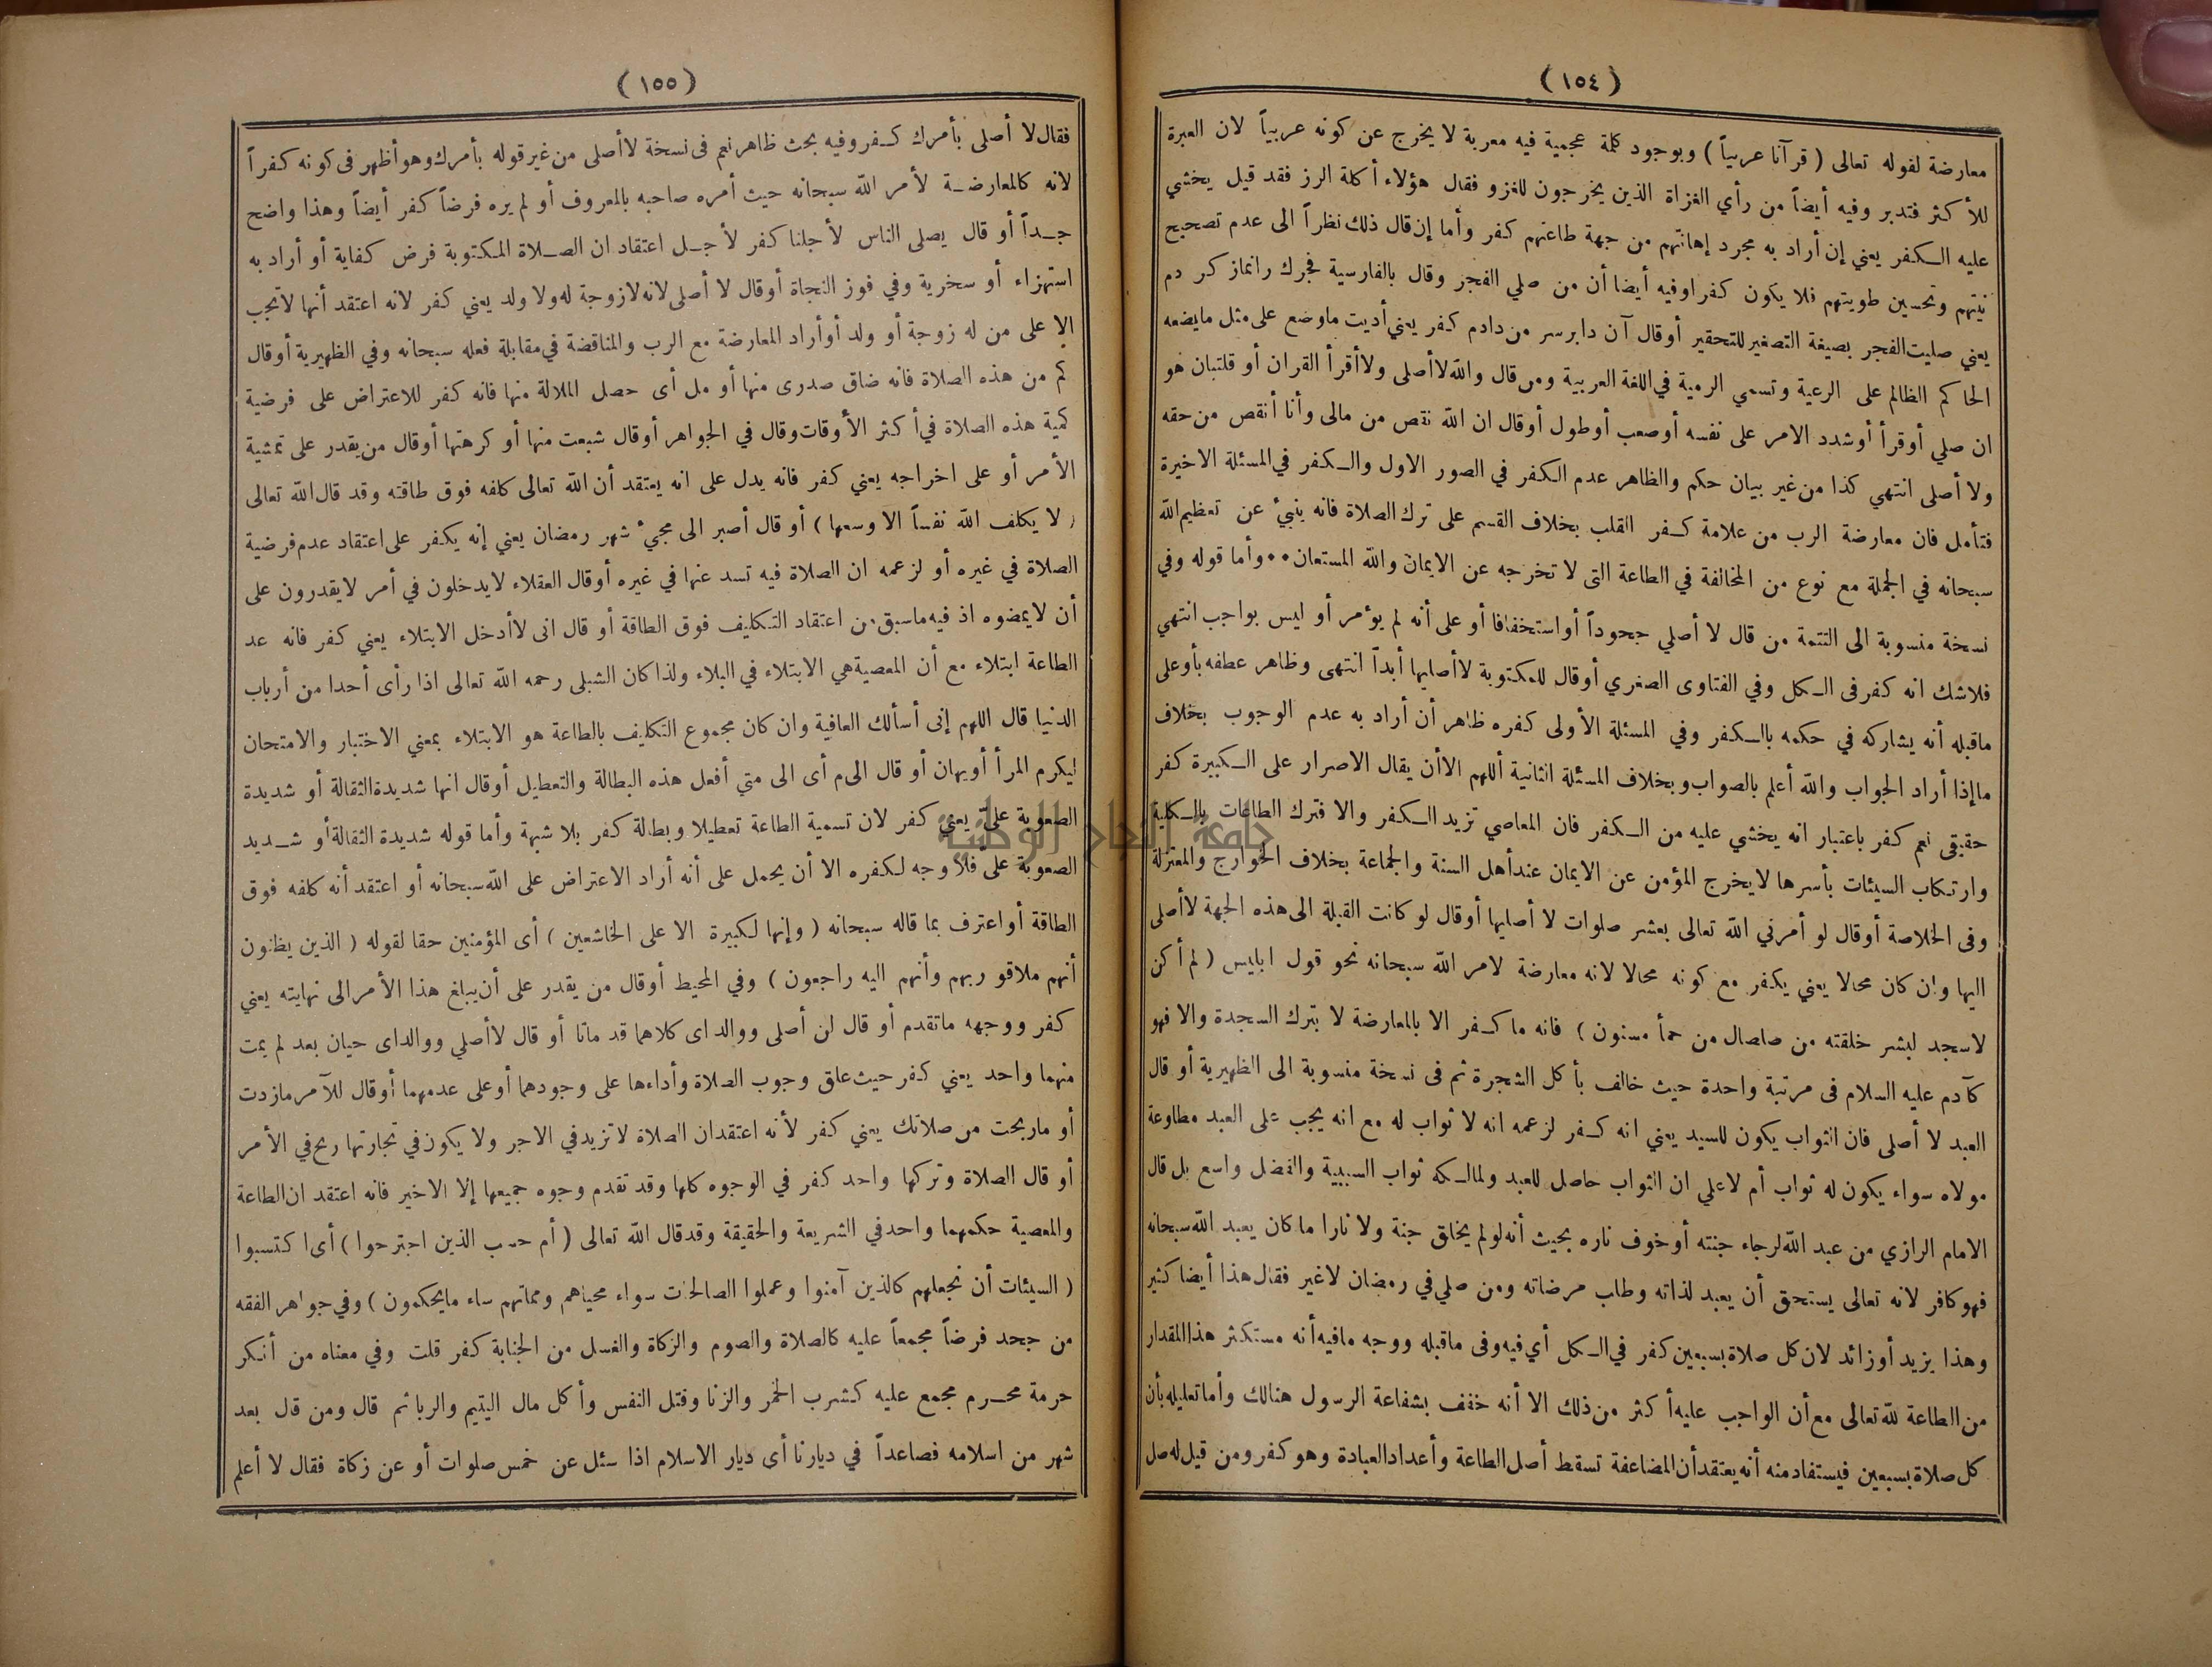 (١٥٤)
معارضة لقوله تعالى (قرآنا عربياً) وبوجود كلمة عجمية فيه معربة لا يخرج عن كونه عربياً لان العبرة
للأكثر فتدبر وفيه أيضاً من رأي الغزاة الذين يخرجون للغزو فقال هؤلاء أكلة الرز فقد قيل يخشي
عليه الكفر يعني إن أراد به مجرد إهانتهم من جهة طاعتهم كفر وأما إن قال ذلك نظراً الى عدم تصحيح
نيتهم وتحسين طويتهم فلا يكون كفرا وفيه أيضا أن من صلي الفجر وقال بالفارسية فجرك رانماز كر دم
يعني صليت الفجر بصيغة التصغير للتحقير أو قال آن دابرسر من دادم كفر يعني أديت ما وضع على مثل ما يضعه
الحاكم الظالم على الرعية وتسمي الرمية في اللغة العربية ومن قال والله لا أصلى ولا أقرأ القران أو قلتبان هو
ان صلي أو قرأ أو شدد الامر على نفسه أو صعب أو طول أو قال ان الله نقص من مالى وأنا أنقص من حقه
ولا أصلى انتهي كذا من غير بيان حكم والظاهر عدم الكفر في الصور الاول والكفر في المسئلة الاخيرة
فتأمل فان معارضة الرب من علامة كفر القلب بخلاف القسم على ترك الصلاة فانه ينبئ عن تعظيم الله
سبحانه في الجملة مع نوع من المخالفة في الطاعة التى لا تخرجه عن الايمان والله المستعان •• وأما قوله وفي
نسخة منسوبة الى التتمة من قال لا أصلي جحوداً أو استخفافا أو على أنه لم يؤمر أو ليس بواجب انتهي
فلا شك انه كفر فى الكل وفي الفتاوى الصغري أو قال للمكتوبة لا أصليها أبداً انتهى وظاهر عطفه بأو على
ماقبله أنه يشاركه في حكمه بالكفر وفي المسئلة الأولى كفره ظاهر أن أراد به عدم الوجوب بخلاف
ما إذا أراد الجواب والله أعلم بالصواب وبخلاف المسئلة الثانية أللهم الا أن يقال الاصرار على الكبيرة كفر
حقيقى نعم كفر باعتبار انه يخشي عليه من الكفر فان المعاصي تزيد الكفر والا فترك الطاعات بالكلية
وارتكاب السيئات بأسرها لا يخرج المؤمن عن الايمان عند أهل السنة والجماعة بخلاف الخوارج والمعتزلة
وفى الخلاصة أو قال لو أمرني الله تعالى بعشر صلوات لا أصليها أو قال لو كانت القبلة الى هذه الجهة لا أصلى
اليها وان كان محالا يعني يكفر مع كونه محالا لانه معارضة لامر الله سبحانه نحو قول ابليس (لم أكن
لاسجد لبشر خلقته من صلصال من حمأ مسنون) فانه ما كفر الا بالمعارضة لا بترك السجدة والا فهو
كآدم عليه السلام فى مرتبة واحدة حيث خالف بأكل الشجرة ثم فى نسخة منسوبة الى الظهيرية أو قال
العبد لا أصلى فان الثواب يكون للسيد يعني انه كفر لزعمه انه لا ثواب له مع انه يجب على العبد مطاوعة
مولاه سواء يكون له ثواب أم لا علي ان الثواب حاصل للعبد ولمالكه ثواب السببية والفضل واسع بل قال
الامام الرازي من عبد الله لرجاء جنته أو خوف ناره بحيث أنه لو لم يخلق جنة ولا نارا ما كان يعبد الله سبحانه
فهو كافر لانه تعالى يستحق أن يعبد لذاته وطلب مرضاته ومن صلي في رمضان لا غير فقال هذا أيضا كثير
وهذا يزيد أو زائد لان كل صلاة بسبعين كفر في الكل أي فيه وفى ماقبله ووجه مافيه أنه مستكثر هذا المقدار
من الطاعة لله تعالى مع أن الواجب عليه أكثر من ذلك الا أنه خفف بشفاعة الرسول هنالك وأما تعليله بأن
كل صلاة بسبعين فيستفاد منه أنه يعتقد أن المضاعفة تسقط أصل الطاعة وأعداد العبادة وهو كفر ومن قيل له صل
(١٥٥)
فقال لا أصلى بأمرك كفر وفيه بحث ظاهر نعم فى نسخة لا أصلى من غير قوله بأمرك وهو أظهر فى كونه كفراً
لانه كالمعارضة لأمر الله سبحانه حيث أمره صاحبه بالمعروف أو لم يره فرضاً كفر أيضاً وهذا واضح
جداً أو قال يصلى الناس لأجلنا كفر لأجل اعتقاد ان الصلاة المكتوبة فرض كفاية أو أراد به
استهزاء أو سخرية وفي فوز النجاة أو قال لا أصلى لانه لا زوجة له ولا ولد يعني كفر لانه اعتقد أنها لاتجب
إلا على من له زوجة أو ولد أو أراد المعارضة مع الرب والمناقضة في مقابلة فعله سبحانه وفي الظهيرية أو قال
كم من هذه الصلاة فانه ضاق صدرى منها أو مل أى حصل الملالة منها فانه كفر للاعتراض على فرضية
كمية هذه الصلاة في أكثر الأوقات وقال في الجواهر أو قال شبعت منها أو كرهتها أو قال من يقدر على تمشية
الأمر أو على اخراجه يعني كفر فانه يدل على انه يعتقد أن الله تعالى كلفه فوق طاقته وقد قال الله تعالى
(لا يكلف الله نفساً الا وسعها) أو قال أصبر الى مجيئ شهر رمضان يعني إنه يكفر على اعتقاد عدم فرضية
الصلاة في غيره أو لزعمه ان الصلاة فيه تسد عنها في غيره أو قال العقلاء لا يدخلون في أمر لا يقدرون على
أن لا يمضوه اذ فيه ماسبق من اعتقاد التكليف فوق الطاقة أو قال انى لا أدخل الابتلاء يعني كفر فانه عد
الطاعة ابتلاء مع أن المعصية هي الابتلاء في البلاء ولذا كان الشبلى رحمه الله تعالى اذا رأى أحدا من أرباب
الدنيا قال اللهم إنى أسألك العافية وان كان مجموع التكليف بالطاعة هو الابتلاء بمعني الاختبار والامتحان
ليكرم المرأ أو يهان أو قال الى م أى الى متي أفعل هذه البطالة والتعطيل أو قال انها شديدة الثقالة أو شديدة
الصعوبة علىّ يعني كفر لان تسمية الطاعة تعطيلا وبطالة كفر بلا شبهة وأما قوله شديدة الثقالة أو شديد
الصعوبة علىّ فلا وجه لكفره الا أن يحمل على أنه أراد الاعتراض على الله سبحانه أو اعتقد أنه كلفه فوق
الطاقة أو اعترف بما قاله سبحانه (وإنها لكبيرة الا على الخاشعين) أى المؤمنين حقا لقوله (الذين يظنون
أنهم ملاقو ربهم وأنهم اليه راجعون) وفي المحيط أو قال من يقدر على أن يبلغ هذا الأمر الى نهايته يعني
كفر ووجهه ماتقدم أو قال لن أصلى ووالداى كلاهما قد ماتا أو قال لا أصلي ووالداى حيان بعد لم يمت
منهما واحد يعني كفر حيث علق وجوب الصلاة وأداءها على وجودهما أو على عدمهما أو قال للآمر مازدت
أو ماربحت من صلاتك يعني كفر لأنه اعتقد ان الصلاة لا تزيد في الاجر ولا يكون في تجارتها ربح في الأمر
أو قال الصلاة وتركها واحد كفر في الوجوه كلها وقد تقدم وجوه جميعها إلا الاخير فانه اعتقد ان الطاعة
والمعصية حكمهما واحد في الشريعة والحقيقة وقد قال الله تعالى (أم حسب الذين اجترحوا) أى اكتسبوا
(السيئات أن نجعلهم كالذين آمنوا وعملوا الصالحات سواء محياهم ومماتهم ساء مايحكمون) وفي جواهر الفقه
من جحد فرضاً مجمعاً عليه كالصلاة والصوم والزكاة والغسل من الجنابة كفر قلت وفي معناه من أنكر
حرمة محرم مجمع عليه كشرب الخمر والزنا وقتل النفس وأكل مال اليتيم والربا ثم قال ومن قال بعد
شهر من اسلامه فصاعداً في ديارنا أى ديار الاسلام اذا سئل عن خمس صلوات أو عن زكاة فقال لا أعلم
جامعة النجاح الوطنية